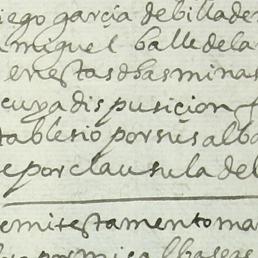 iego garçia de billade
miguel balle de la
en estas dhas minas
cuya dispusiçion
tablesio por sus alba
e por clausula del
emi testamento ma